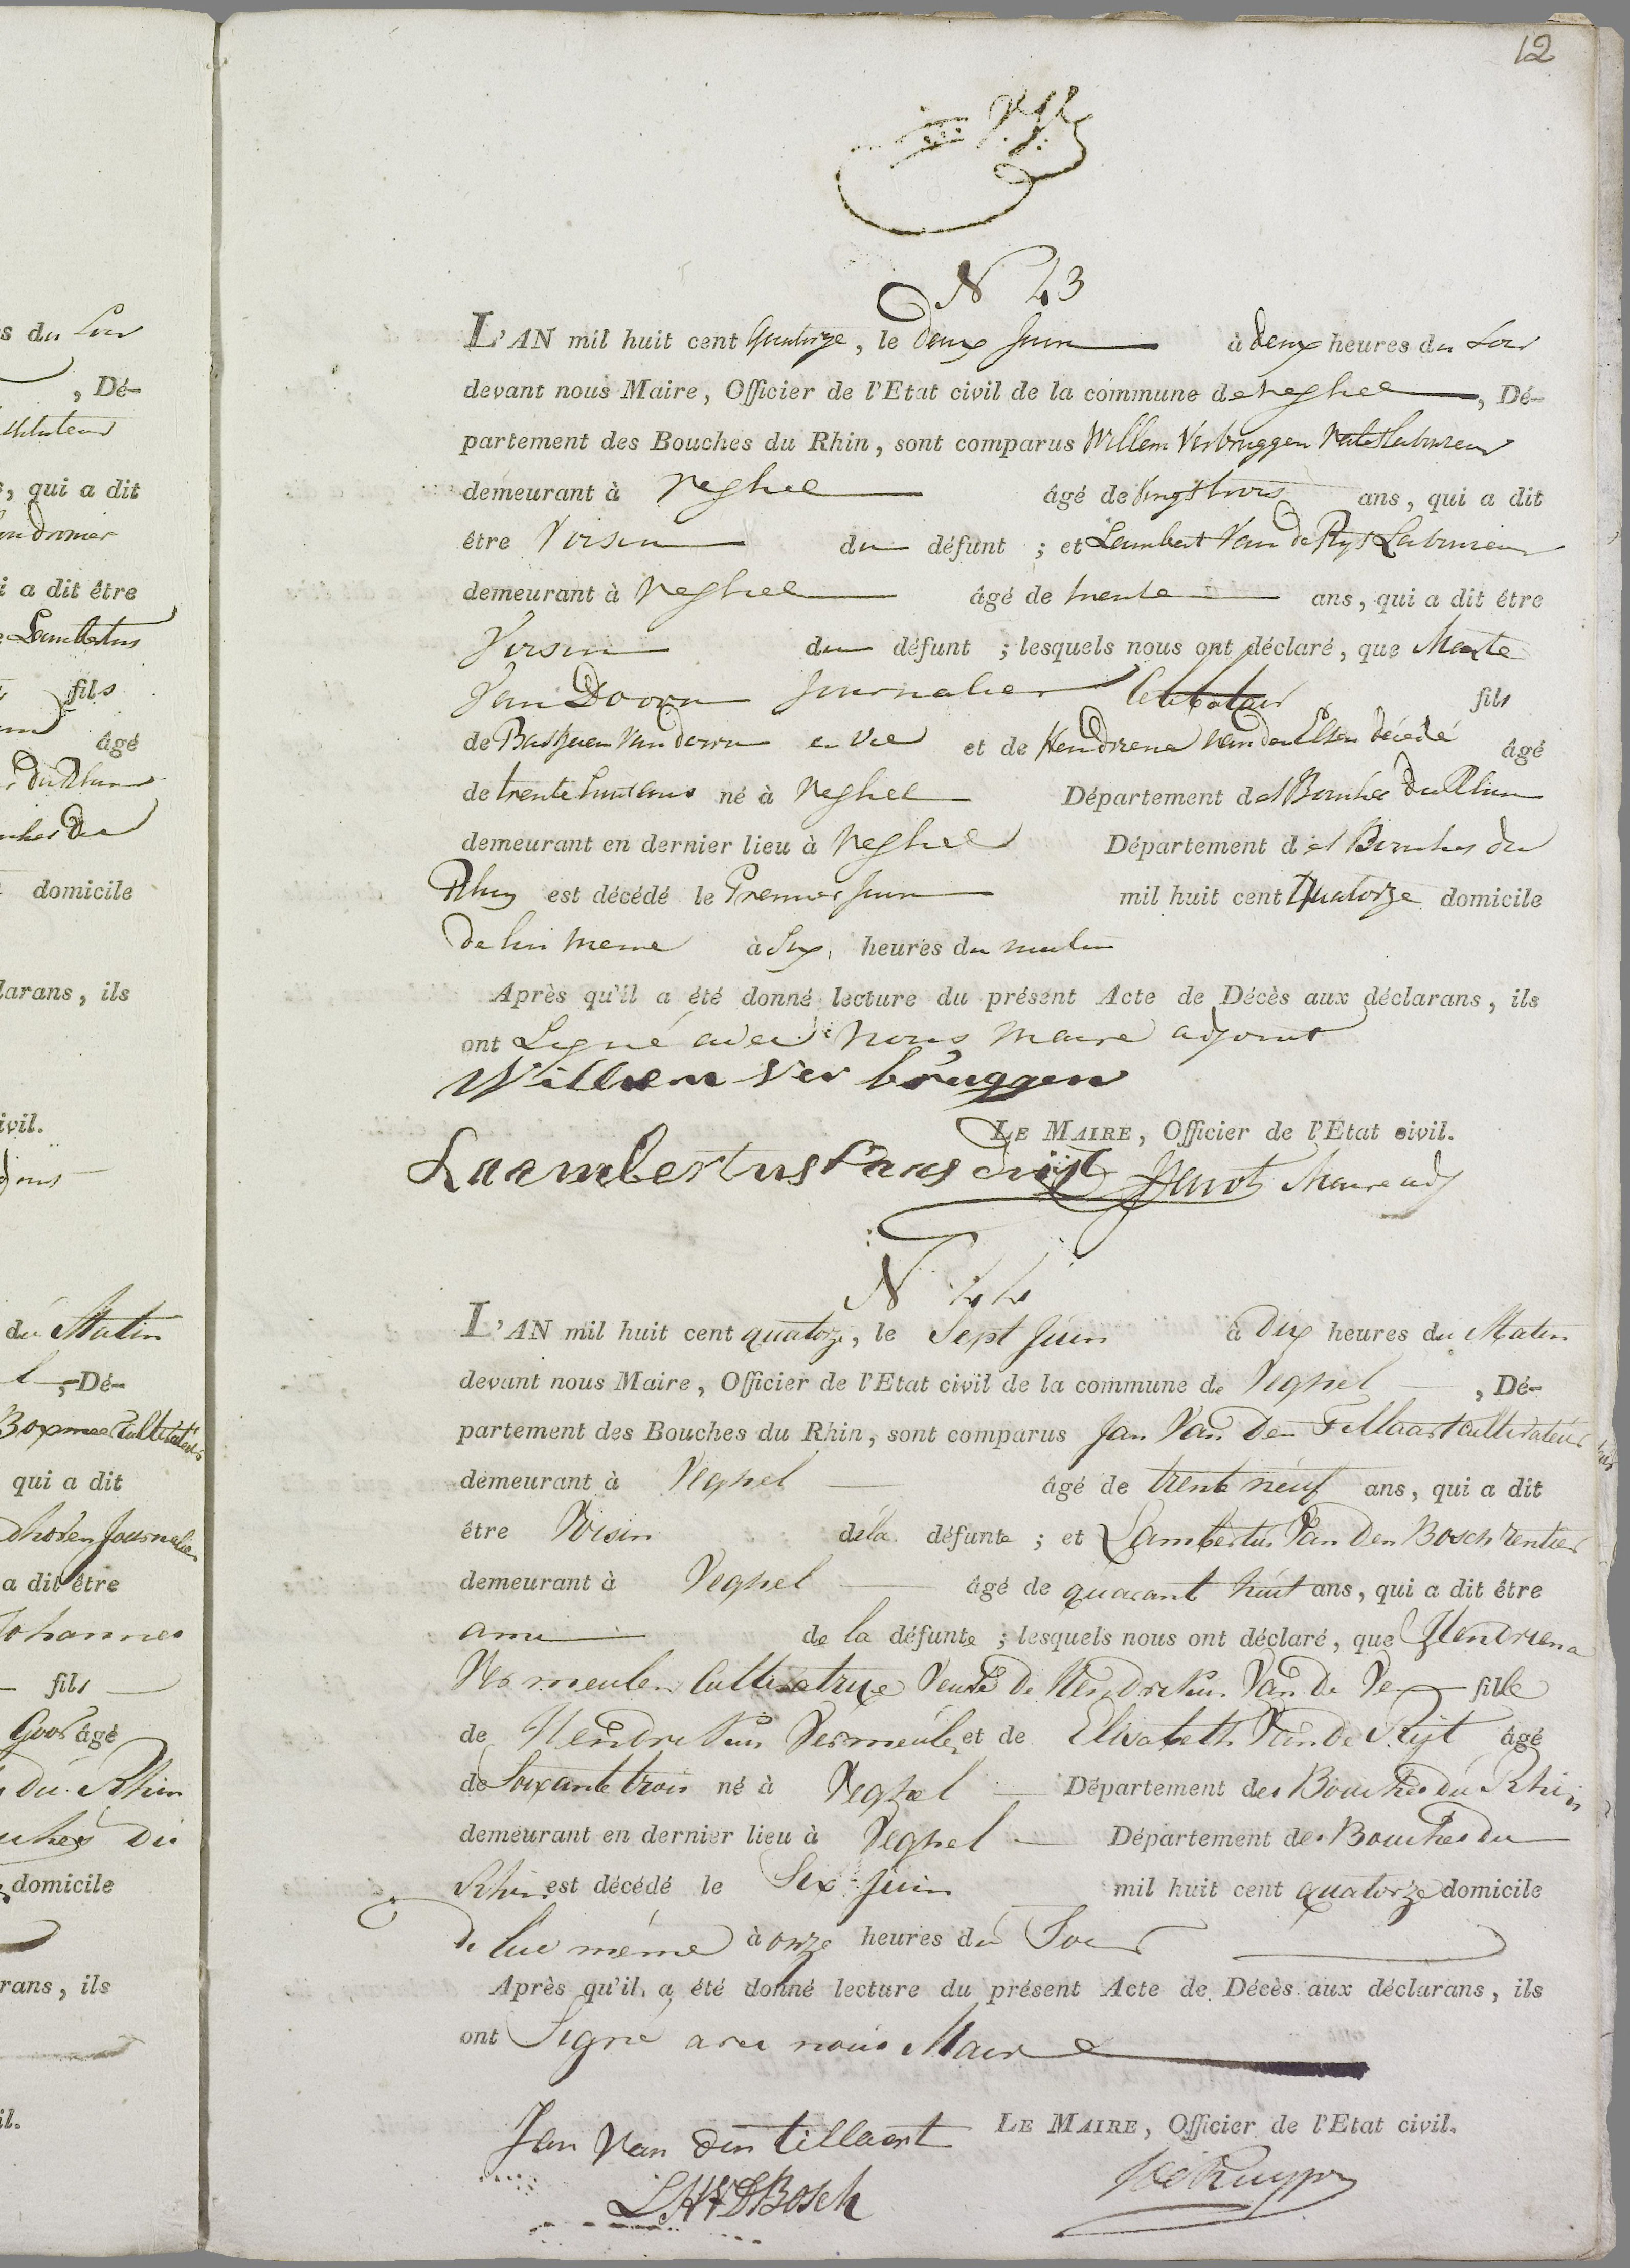 12
s du Soir
, Dé-
, qui a dit
i a dit être
Lambertus
fils
âgé
du Rhin
domicile
larans, ils
ivil.
du Matin
l , Dé-
Boxmeer Cultivateur
qui a dit
Journalier
a dit être
Johannes
fils
Goor âgé
du Rhin
domicile
rans, ils
il.
N 43
L'AN mil huit cent quatorze, le deux Juin à deux heures du Soir
devant nous Maire, Officier de l'Etat civil de la commune de Veghel, Dé-
partement des Bouches du Rhin, sont comparus Willem Verbruggen Laboureur
demeurant à Veghel âgé de vingt trois ans, qui a dit
être Voisin du défunt ; et Lambert Van de Ryt Laboureur
demeurant à Veghel âgé de trente ans, qui a dit être
Voisin du défunt ; lesquels nous ont déclaré, que
Van Doorn Journalier fils
de Van Doorn en vie et de Hendriena van den Elsen décédé âgé
de trente huit ans né à Veghel Département des Bouches du Rhin
demeurant en dernier lieu à Veghel Département des Bouches du
Rhin est décédé le Premier Juin mil huit cent Quatorze domicile
de lui meme à Six heures du matin
Après qu'il a été donné lecture du présent Acte de Décès aux déclarans, ils
ont Signé avec nous maire adjoint
Willem Verbruggen
LE MAIRE, Officier de l'Etat civil.
Laambertus Maire adj
N 44
L'AN mil huit cent quatorze, le Sept Juin à Dix heures du Matin
devant nous Maire, Officier de l'Etat civil de la commune de Veghel, Dé-
partement des Bouches du Rhin, sont comparus Jan Van Den Tillaart cultivateur
demeurant à Veghel âgé de trente neuf ans, qui a dit
être Voisin de la défunte ; et Lambertus Van Den Bosch rentier
demeurant à Veghel âgé de quarant huit ans, qui a dit être
ami de la défunte ; lesquels nous ont déclaré, que Hendriena
Vermeulen Cultivatrice Veuve De Hendrikus Van De Ve fille
de Hendrikus Vermeulen et de Elisabeth Van De Rijt âgé
de Soixante trois né à Veghel Département des Bouches du Rhin
demeurant en dernier lieu à Veghel Département des Bouches du
Rhin est décédé le Six Juin mil huit cent quatorze domicile
de lui même à onze heures du Soir
Après qu'il a été donné lecture du présent Acte de Décès aux déclarans, ils
ont Signé avec nous Maire
Jan Van den tillaart LE MAIRE, Officier de l'Etat civil.
LHVDBosch